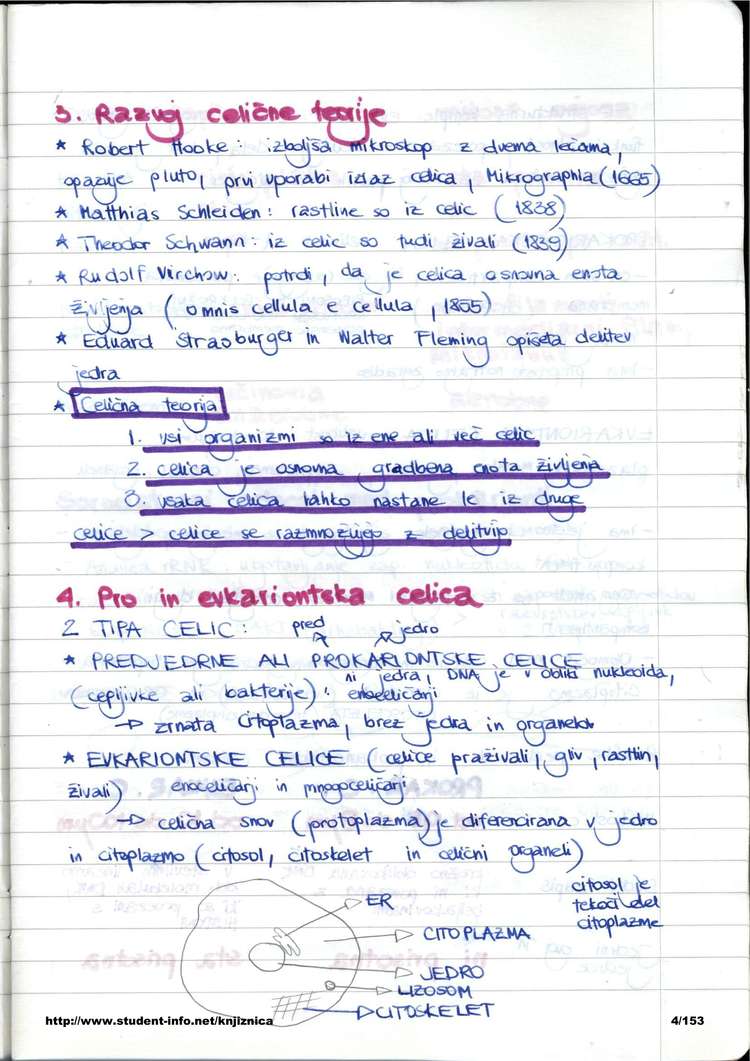 3. Razvoj celične teorije
* Robert Hooke: izboljša mikroskop z dvema lečama,
opazuje pluto, prvi uporabi izraz celica, Mikrographia (1665)
* Matthias Schleiden: rastline so iz celic (1838)
* Theodor Schwann: iz celic so tudi živali (1839)
* Rudolf Virchow: potrdi, da je celica osnovna enota
življenja (omnis cellula e cellula, 1855)
* Eduard Strasburger in Walter Fleming opišeta delitev
jedra
* Celična teorija
1. vsi organizmi so iz ene ali več celic
2. celica je osnovna gradbena enota življenja
3. vsaka celica lahko nastane le iz druge
celice > celice se razmnožujejo z delitvijo
4. Pro in evkariontska celica
2 TIPA CELIC: pred jedro
* PREDJEDRNE ALI PROKARIONTSKE CELICE
ni jedra, DNA je v obliki nukleoida,
(cepljivke ali bakterije): enoceličarji
→ zrnata citoplazma, brez jedra in organelov
* EVKARIONTSKE CELICE (celice praživali, gliv, rastlin,
živali) enoceličarji in mnogoceličarji
→ celična snov (protoplazma) je diferencirana v jedro
in citoplazmo (citosol, citoskelet in celični organeli)
ER
citosol je
tekoči del
citoplazme
CITOPLAZMA
JEDRO
LIZOSOM
CITOSKELET
http://www.student-info.net/knjiznica 4/153